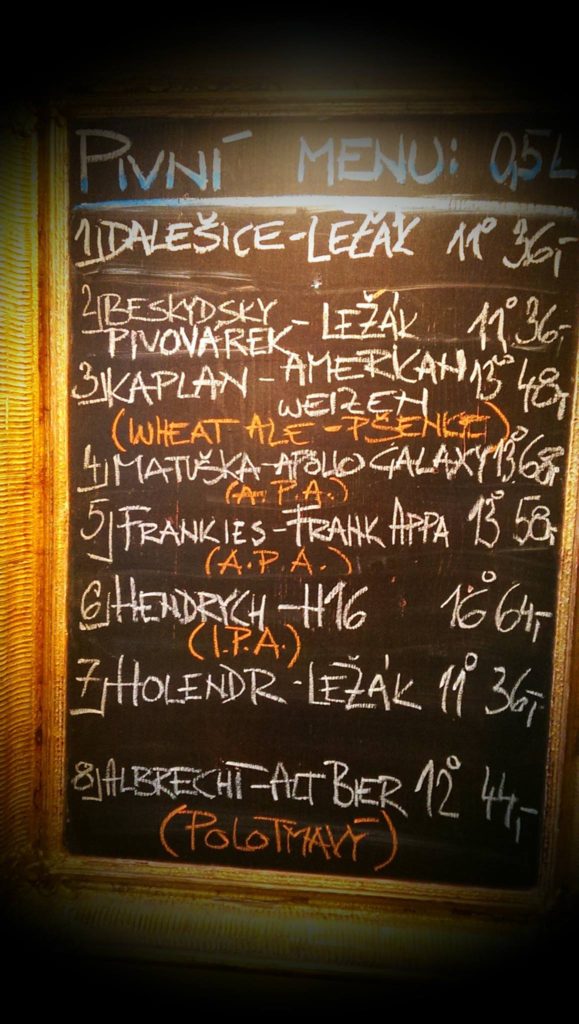 PIVNÍ MENU: 0,5L
1) DALEŠICE - LEŽÁK 11° 36,-
2) BESKYDSKY PIVOVÁREK - LEŽÁK 11° 36,-
3) KAPLAN - AMERICAN WEIZEN 13° 48,-
(WHEAT ALE - PŠENICE)
4) MATUŠKA - APOLLO GALAXY 13° 68,-
(A.P.A.)
5) FRANKIES - FRANK APPA 13° 58,-
(A.P.A.)
6) HENDRYCH - H16 16° 64,-
(I.P.A.)
7) HOLENDR - LEŽÁK 11° 36,-
8) ALBRECHT - ALT BIER 12° 44,-
(POLOTMAVÝ)